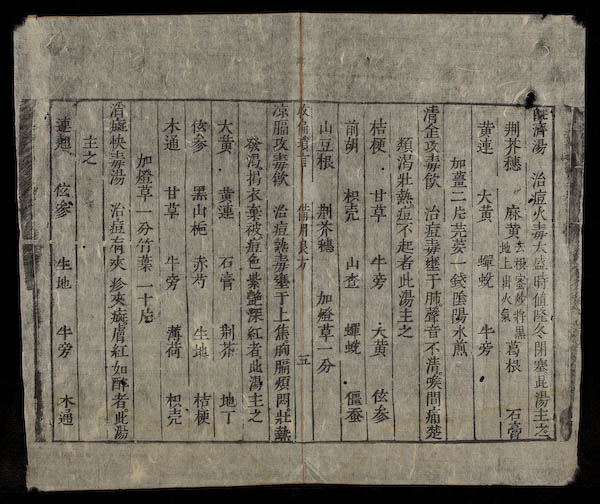 既濟湯 治痘火毒太盛時值隆冬閉塞此湯主之
荆芥穗 麻黄去根蜜炒將黑地上出火氣 葛根 石膏
黄連 大黄 蟬蛻 牛旁
加薑二片芫荽一錢陰陽水煎
清金攻毒飲 治痘毒壅于肺聲音不清喉間痛楚
煩渴壯熱痘不起者此湯主之
桔梗 甘草 牛旁 大黄 玄参
前胡 枳壳 山查 蟬蛻 僵蚕
山豆根 荆芥穗 加燈草一分
備用良方 五
凉膈攻毒飲 治痘熱毒壅于上焦胸膈煩悶壯熱
發渴揭衣棄被痘色紫艶深紅者此湯主之
大黄 黄連 石膏 荆芥 地丁
玄参 黑山栀 赤芍 生地 桔梗
木通 甘草 牛旁 薄荷 枳壳
加燈草一分竹葉一十片
消癍快毒湯 治痘有夾疹夾癍膚紅如醉者此湯
主之
連翹 玄参 生地 牛旁 木通